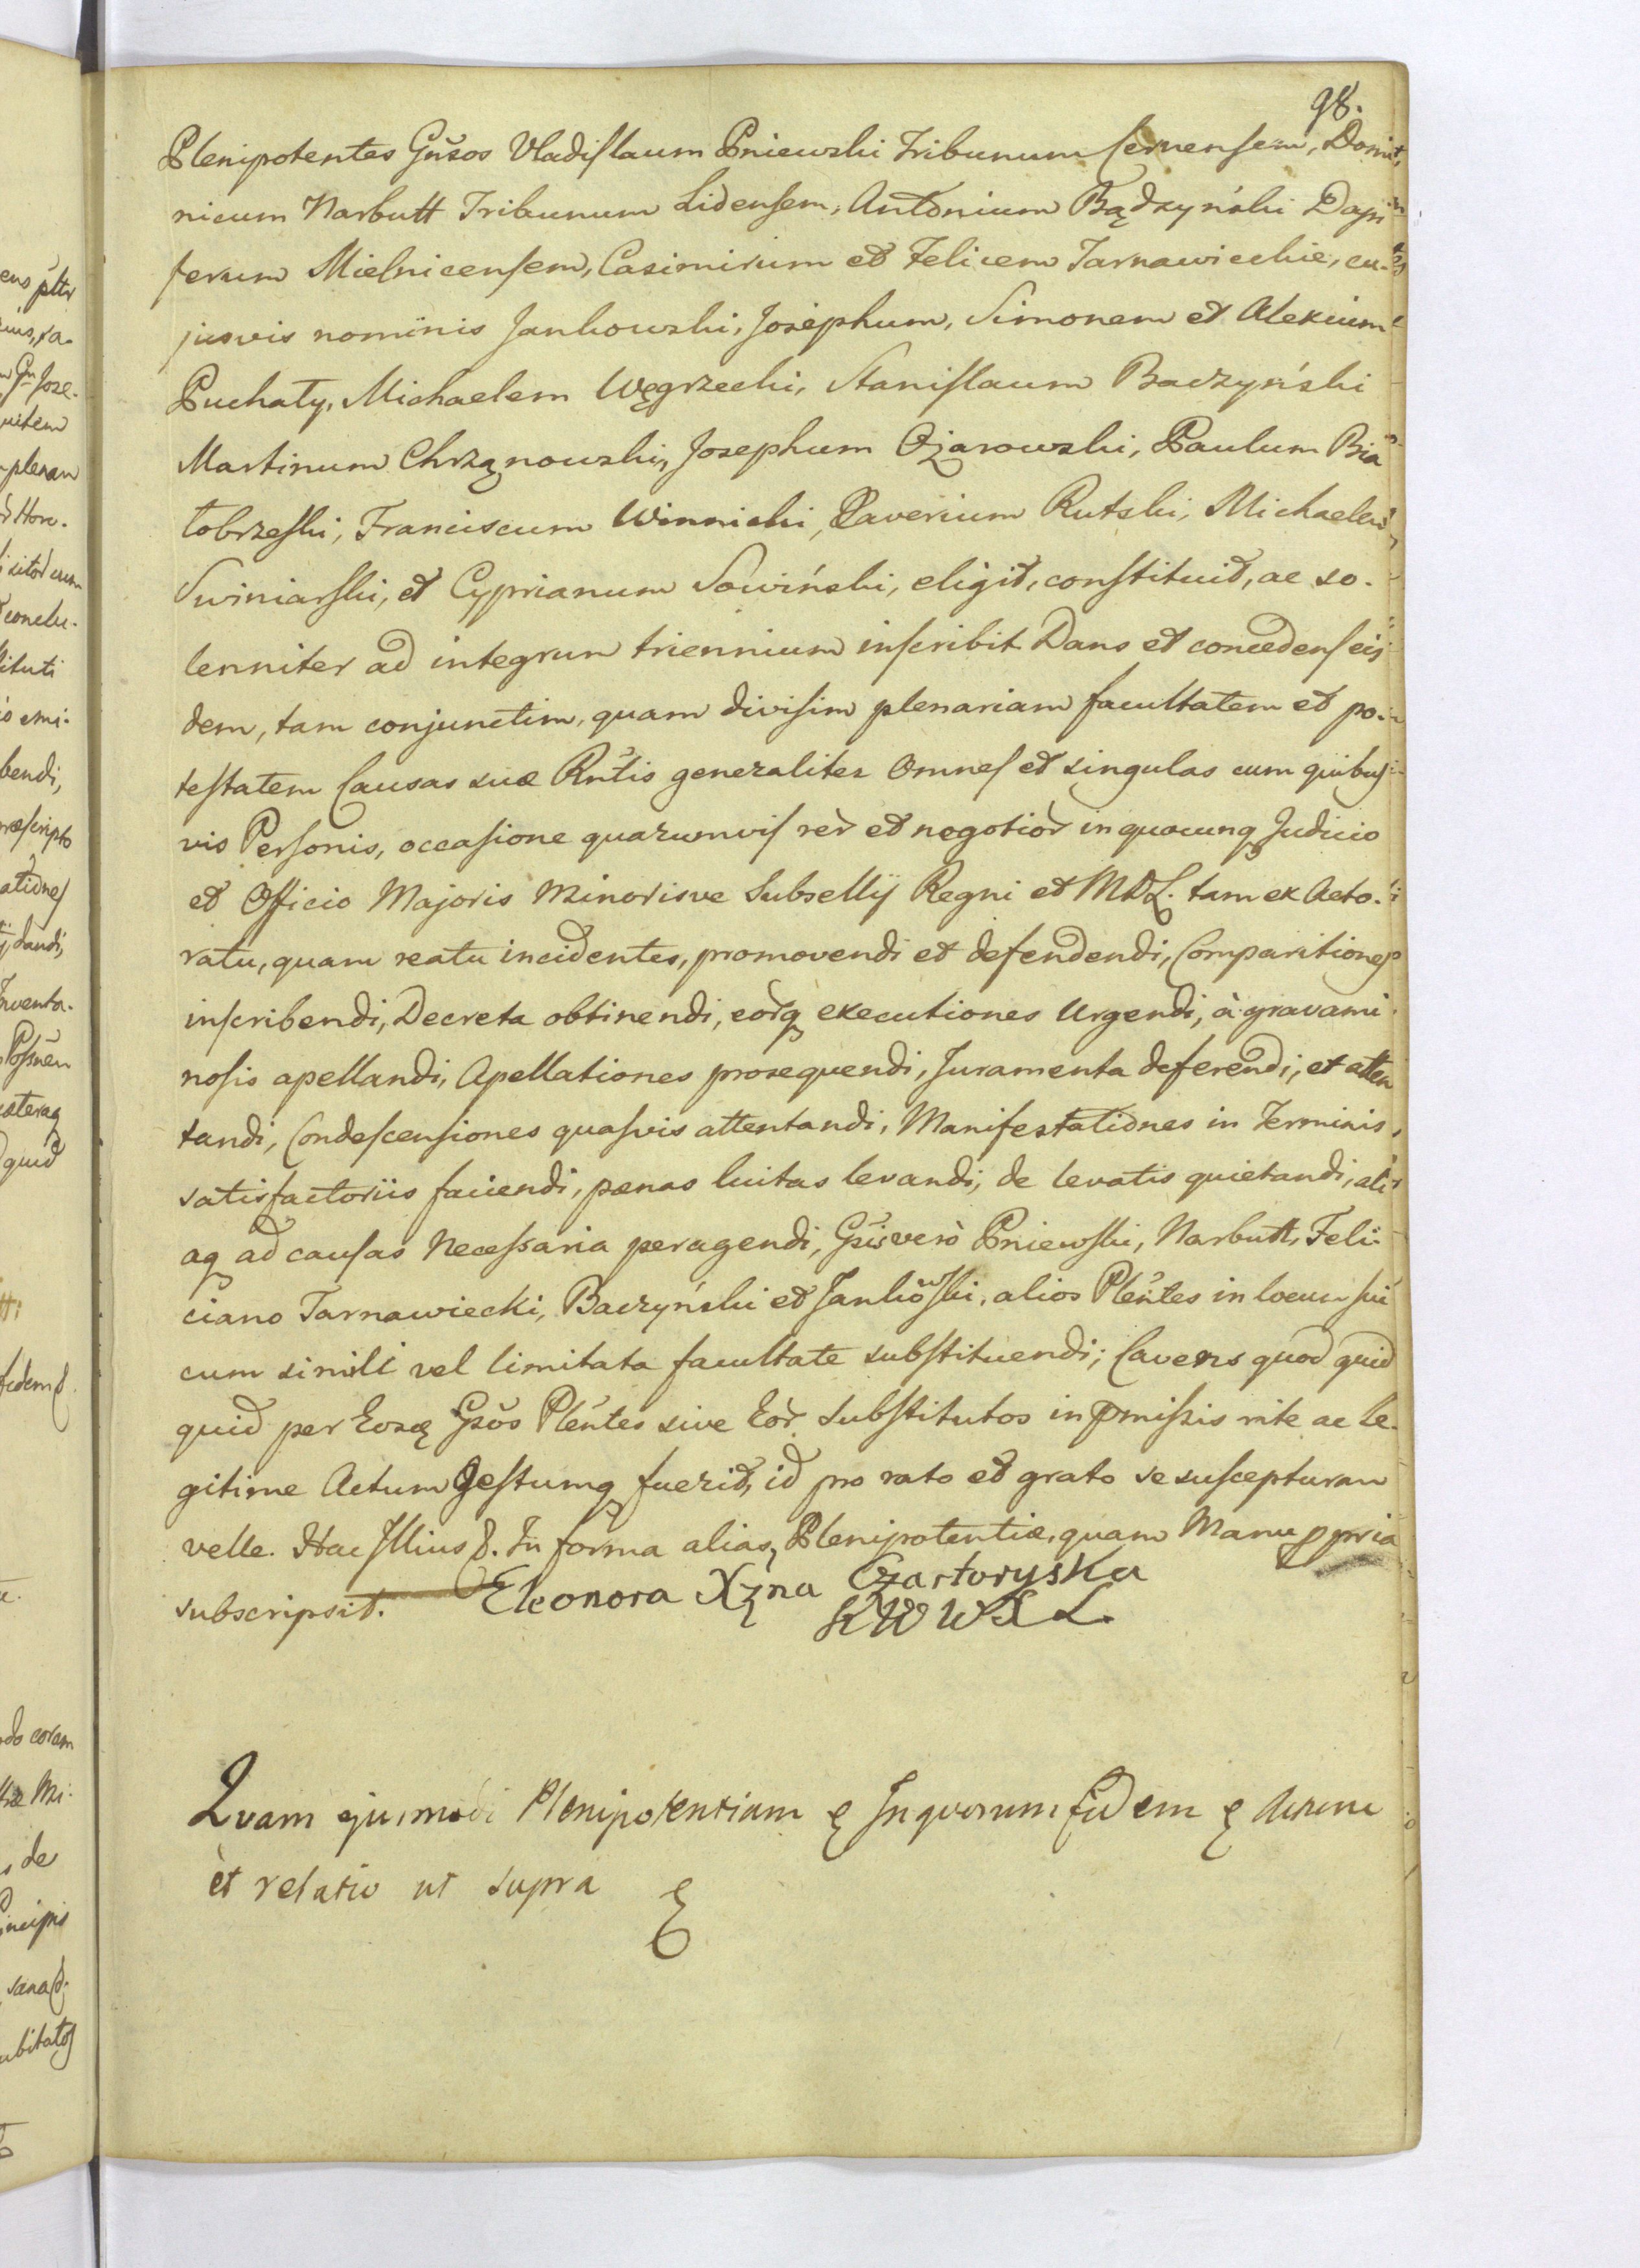 98.
Plenipotentes Gn̄sos Vladislaum Pniewski Tribunum Cernensem, Domi-
nicum Narbutt Tribunum Lidensem, Antonium Bądzyński Dapi
ferum Mielnicensem, Casimirum et Felicem Tarnawieckie, cu-
jusvis nominis Jankowski, Josephum, Simonem et Alexium
Puchaty, Michaelem Węgrzecki, Stanislaum Baczyński
Martinum Chrząnowski, Josephum Ożarowski, Paulum Bia
tobrzeski, Franciscum Winnicki, Xaverium Rutski, Michaelem
Swiniarski, et Cyprianum Sowiński, eligit, constituit, ac so-
lenniter ad integrum triennium inscribit Dans et concedens eis
dem, tam conjunctim, quam divisim plenariam facultatem et po-
testatem Causas suæ Rn̄tis generaliter Omnes et singulas cum quibus
vis Personis, occasione quarumvis rer̄ et negotior̄ in quocunq Judicio
et Officio Majoris Minorisve Subsellij Regni et MDL. tam ex Acto-
ratu, quam reatu incidentes, promovendi et defendendi, Comparitiones
inscribendi, Decreta obtinendi, eor̄q executiones Urgendi, à gravami
nosis apellandi, Apellationes prosequendi, Juramenta deferendi, et atten
tandi, Condescensiones quasvis attentandi, Manifestationes in Terminis
satisfactoriis faciendi, pænas luitas levandi, de levatis quietandi, ali
aq ad causas Necessaria peragendi, Gsis verò Pniewski, Narbutt, Feli-
ciano Tarnawiecki, Baczyński et Jankowski, alios Plēntes in locum sui
cum simili vel limitata facultate substituendi; Cavens quod quid
quid per Eosq Gsōs Plēntes sive Eor̄ Substitutos in præmissis rite ac le-
gitime Actum Gestumq fuerit, id pro rato et grato se suscepturam
velle. Hac Illius &. In forma alias, Plenipotentiæ, quam Manu ppria
subscripsit. Eleonora Xżna Czartoryska
KWWXL.
Quam ejusmodi Plenipotentiam & In quorum fidem & Actum
et relatio ut supra &